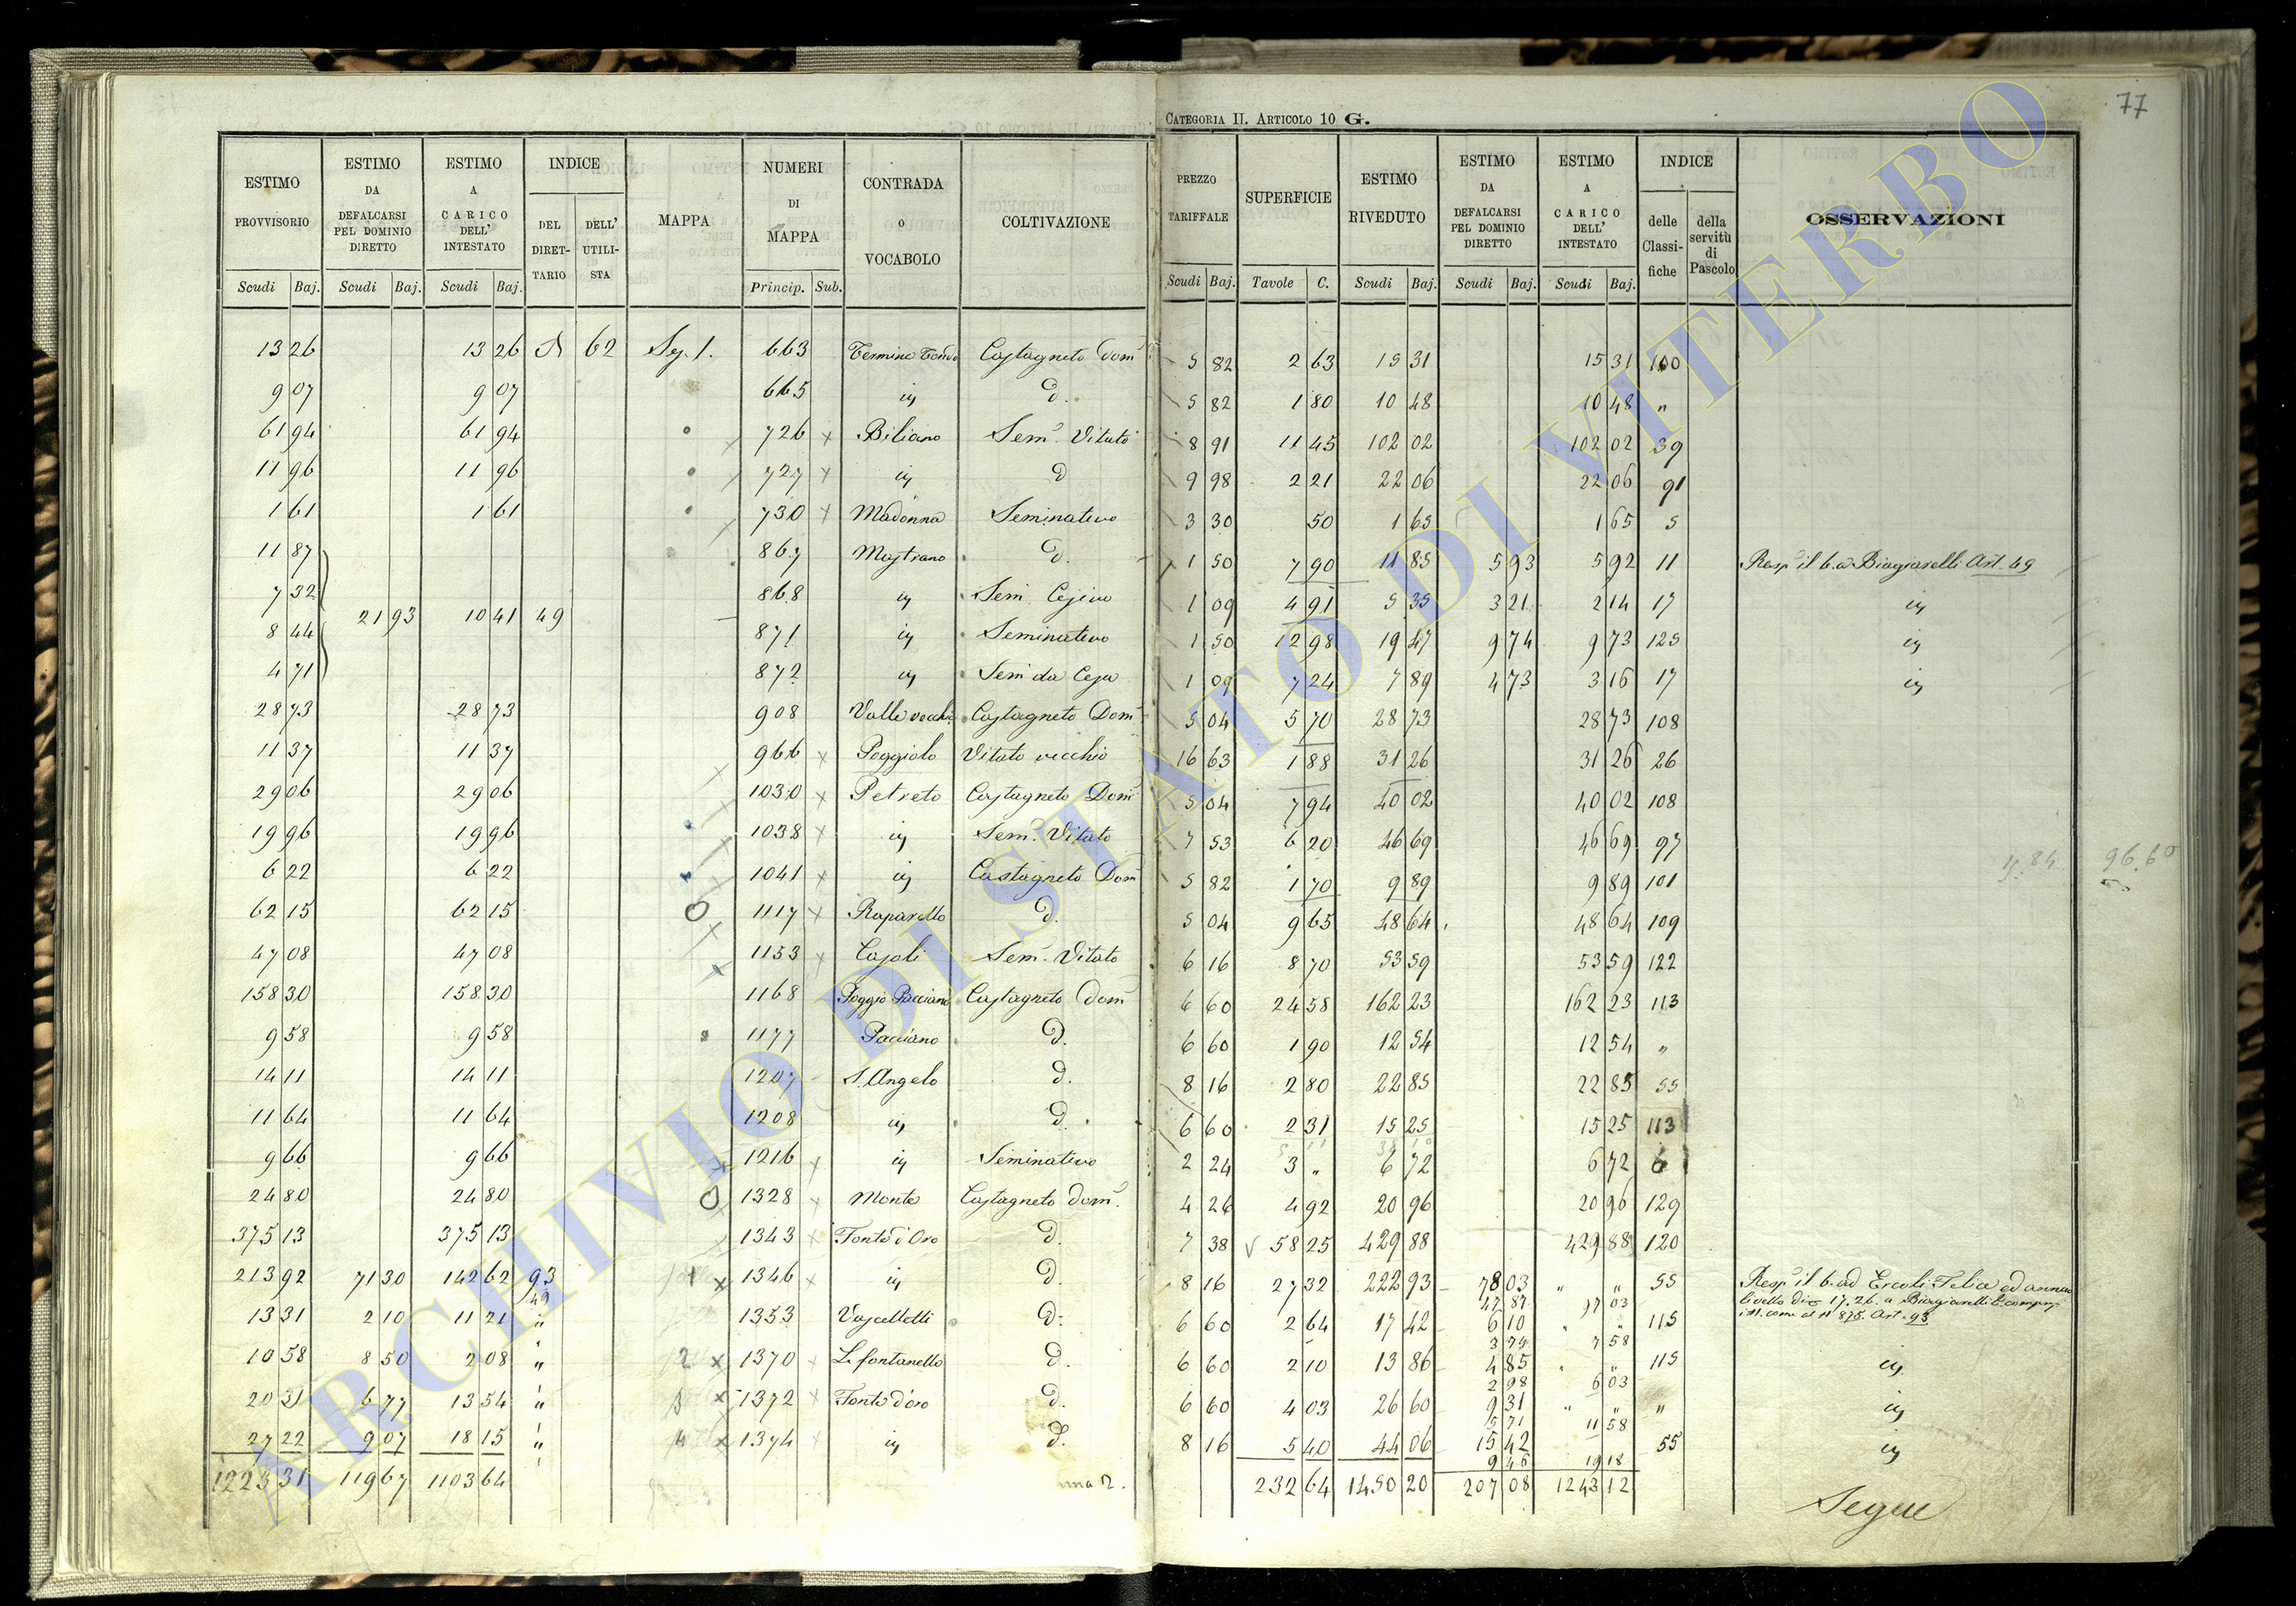 77
CATEGORIA II. ARTICOLO 10 G.
ESTIMO PROVVISORIO Scudi Baj. | ESTIMO DA DEFALCARSI PEL DOMINIO DIRETTO Scudi Baj. | ESTIMO A CARICO DELL' INTESTATO Scudi Baj. | INDICE DEL DIRETTARIO | DELL' UTILISTA | MAPPA | NUMERI DI MAPPA Princip. Sub. | CONTRADA o VOCABOLO | COLTIVAZIONE
13 26 13 26 62 Sez. 1. 663 Termine Tondo Castagneto Dom
9 07 9 07 665 id d.
61 94 61 94 726 x Biliano Sem. Vitato
11 96 11 96 727 x id d
1 61 1 61 730 x Madonna Seminativo
11 87 867 Mastrano d.
7 32 868 id Sem Cesivo
21 93 10 41 49
8 44 871 id Seminativo
4 71 872 id Sem da Cesa
28 73 28 73 908 Valle vecchia Castagneto Dom
11 37 11 37 966 x Poggiolo Vitato vecchio
29 06 29 06 1030 x Petreto Castagneto Dom
19 96 19 96 1038 x id Sem. Vitato
6 22 6 22 1041 x id Castagneto Dom
62 15 62 15 O 1117 x Raparello d.
47 08 47 08 1153 x Casoli Sem. Vitato
158 30 158 30 x 1168 Poggio Pacciano Castagneto Dom
9 58 9 58 1177 Pacciano d.
14 11 14 11 1207 S. Angelo d.
11 64 11 64 1208 id d.
9 66 9 66 x 1216 x id Seminativo
24 80 24 80 O 1328 x Monte Castagneto dom.
375 13 375 13 1343 x Fonte d'Oro d.
213 92 71 30 142 62 93 49 1 x 1346 x id d.
13 31 2 10 11 21 " 1353 Vascelletti d.
10 58 8 50 2 08 " 2 x 1370 x Le fontanelle d.
20 31 6 77 13 54 " 3 x 1372 x Fonte d'oro d.
27 22 9 07 18 15 " 4 x 1374 x id d.
1223 31 119 67 1103 64
PREZZO TARIFFALE Scudi Baj. | SUPERFICIE Tavole C. | ESTIMO RIVEDUTO Scudi Baj. | ESTIMO DA DEFALCARSI PEL DOMINIO DIRETTO Scudi Baj. | ESTIMO A CARICO DELL' INTESTATO Scudi Baj. | INDICE delle Classifiche | della servitù di Pascolo | OSSERVAZIONI
5 82 2 63 15 31 15 31 100
5 82 1 80 10 48 10 48 "
8 91 11 45 102 02 102 02 39
9 98 2 21 22 06 22 06 91
3 30 50 1 65 1 65 5
1 50 7 90 11 85 5 93 5 92 11 Resp il b. a Biagiarelli Art. 49
1 09 4 91 5 35 3 21 2 14 17 id
1 50 12 98 19 47 9 74 9 73 125 id
1 09 7 24 7 89 4 73 3 16 17 id
5 04 5 70 28 73 28 73 108
16 63 1 88 31 26 31 26 26
5 04 7 94 40 02 40 02 108
7 53 6 20 46 69 46 69 97
96.60
5 82 1 70 9 89 9 89 101
5 04 9 65 48 64 48 64 109
6 16 8 70 53 59 53 59 122
6 60 24 58 162 23 162 23 113
6 60 1 90 12 54 12 54 "
8 16 2 80 22 85 22 85 55
6 60 2 31 15 25 15 25 113
2 24 3 " 6 72 6 72 6
4 26 4 92 20 96 20 96 129
7 38 58 25 429 88 429 88 120
8 16 27 32 222 93 78 03 " " 55 Resp il b. ad Ercoli Felice ed annuo
47 87 97 03 livello di 17.26. a Biagiarelli
6 60 2 64 17 42 6 10 " " 115 al N 875. Art. 93
3 74 7 58
6 60 2 10 13 86 4 85 " " 115 id
2 98 6 03
6 60 4 03 26 60 9 31 " " " id
5 71 11 58
8 16 5 40 44 06 15 42 55 id
9 46 19 18
232 64 1450 20 207 08 1243 12
Segue
ARCHIVIO DI STATO DI VITERBO